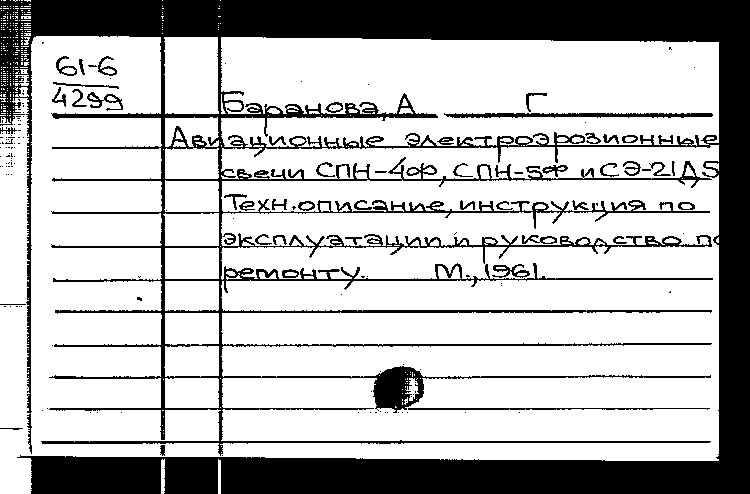 61-6
4299
Баранова, А Г
Авиационные электроэрозионные
свечи СПН-4Ф, СПН-5Ф и СЭ-21Д5
Техн.описание, инструкция по
эксплуатации и руководство по
ремонту. М., 1961.